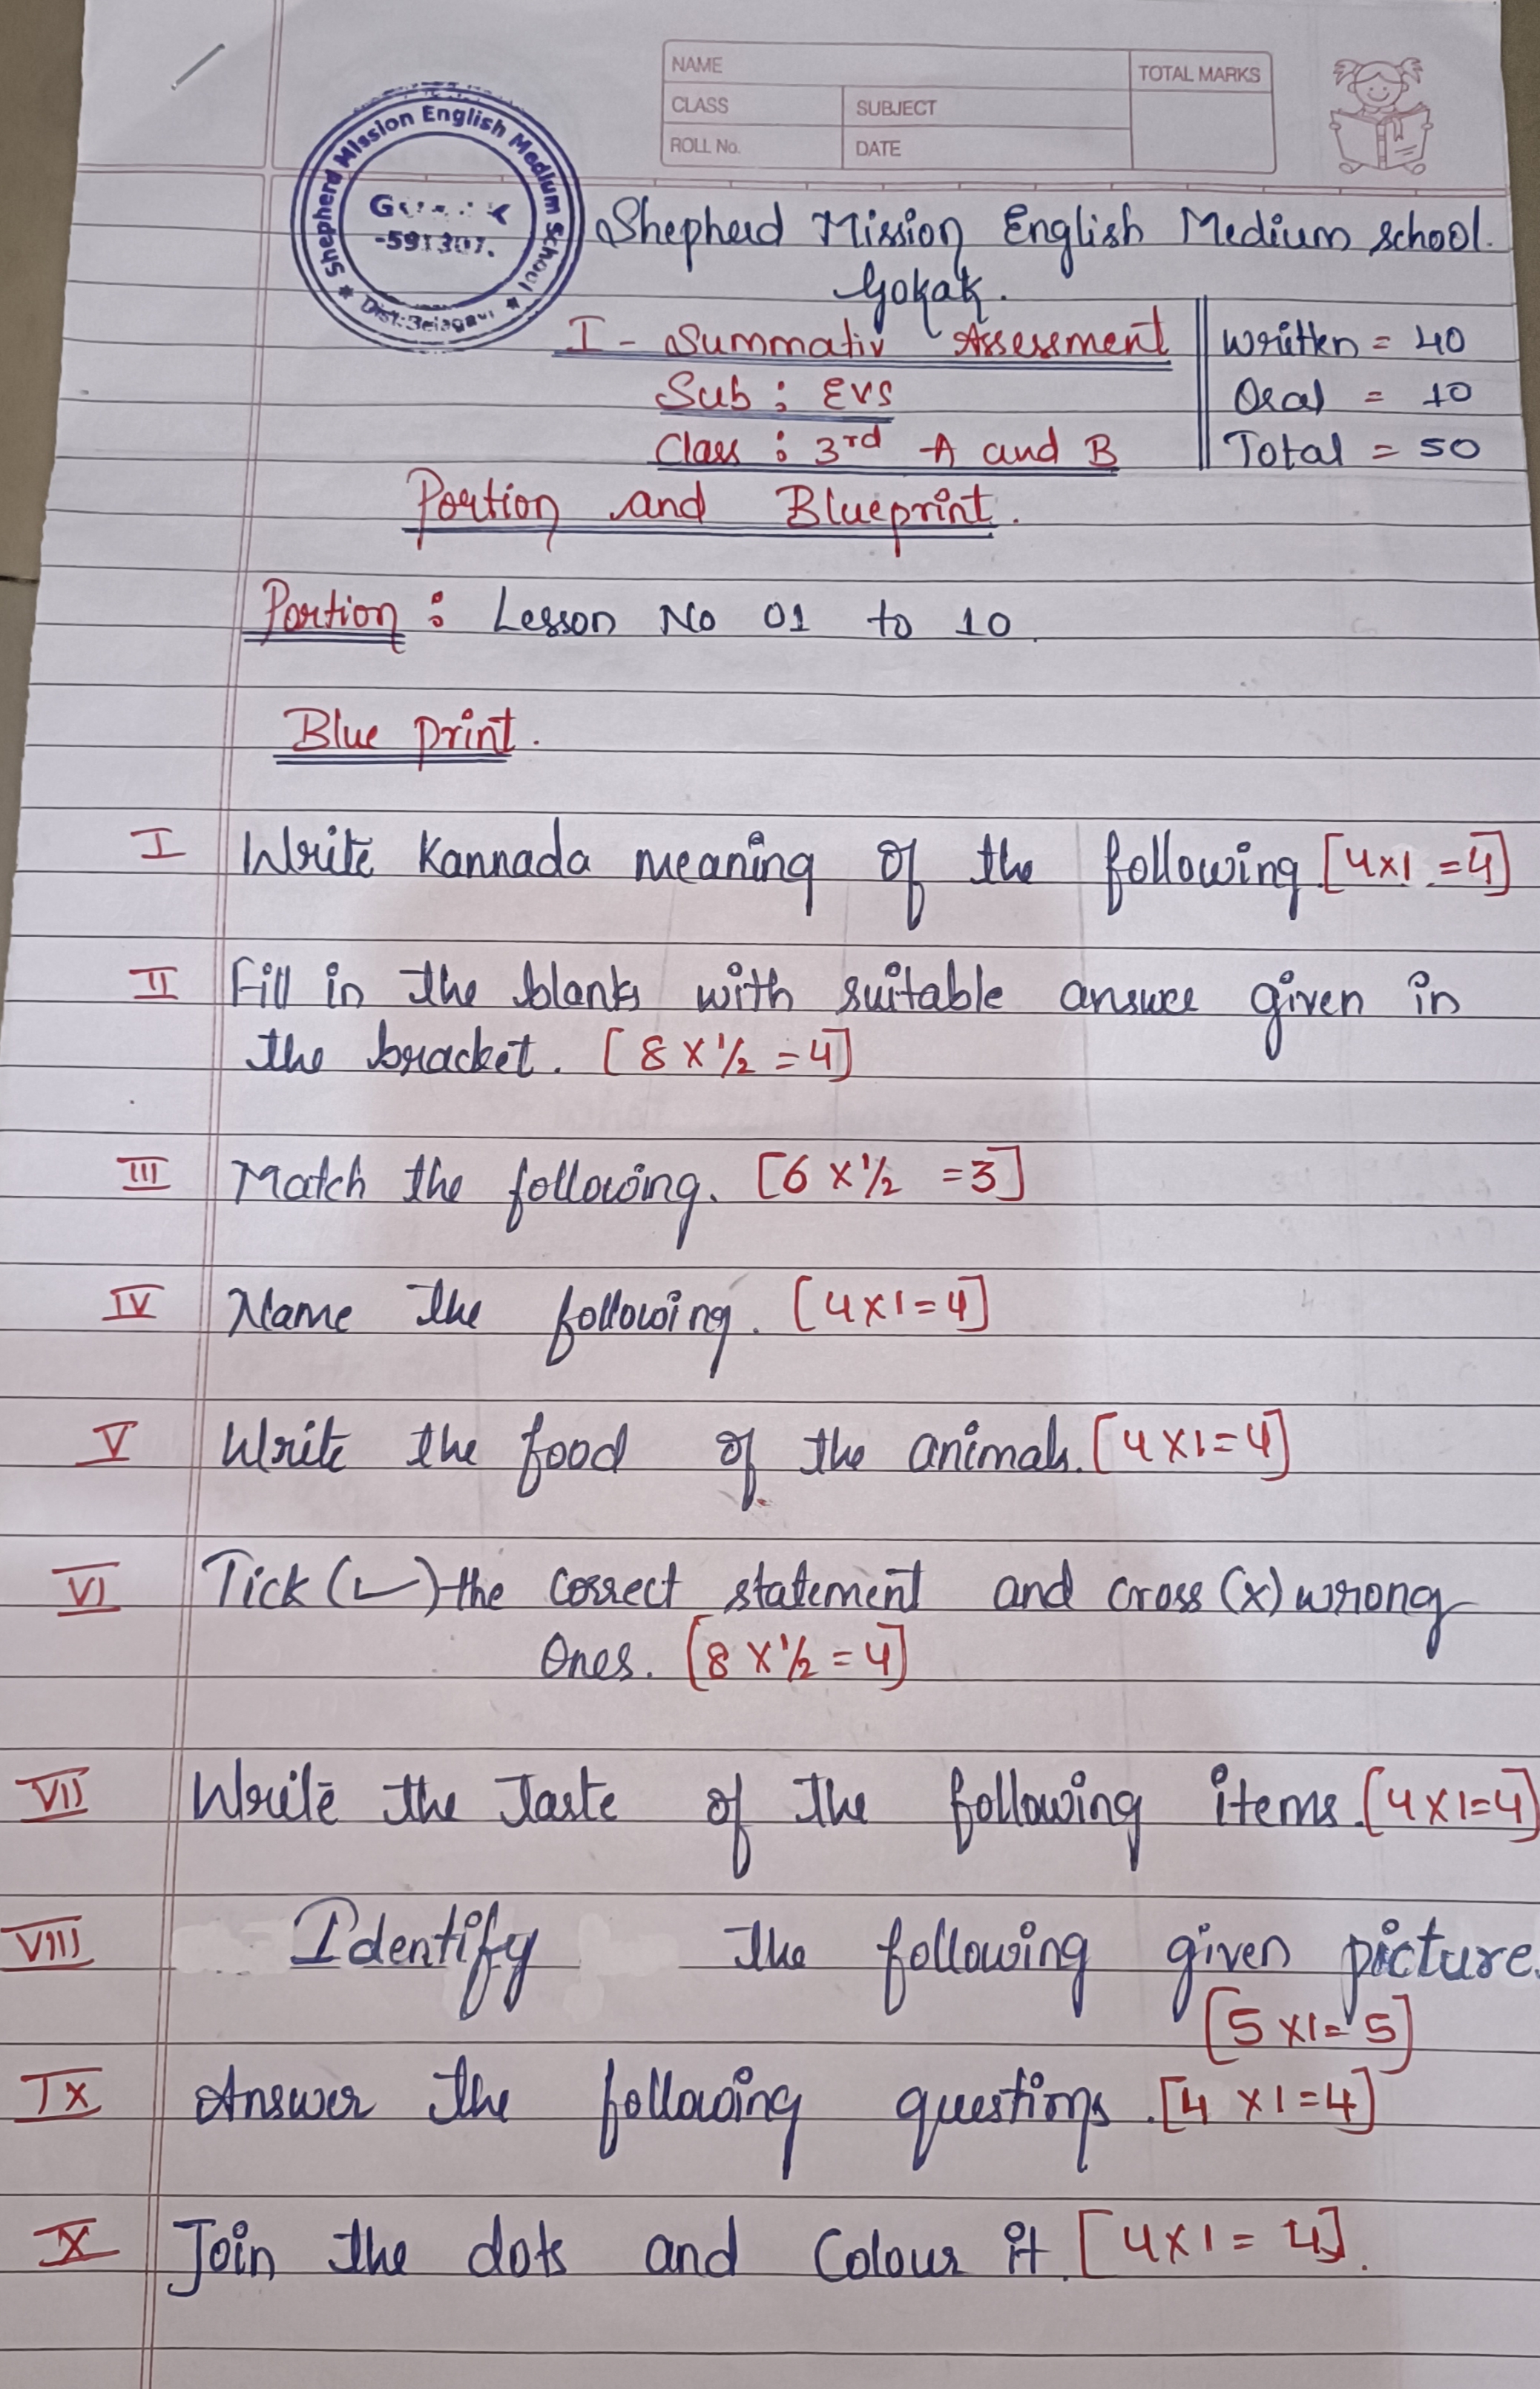 NAME
TOTAL MARKS
CLASS
SUBJECT
ROLL No.
DATE
Shepherd Mission English Medium School
-591307.
Dist:Belagavi
Shepherd Mission English Medium school.
Gokak.
I - Summativ Assessment
Written = 40
Sub : EVS
Oral = 10
Class : 3rd A and B
Total = 50
Portion and Blueprint.
Portion : Lesson No 01 to 10.
Blue print.
I Write Kannada meaning of the following [4x1 = 4]
II Fill in the blanks with suitable answer given in
the bracket. [8 x 1/2 = 4]
III Match the following. [6 x 1/2 = 3]
IV Name the following. [4x1=4]
V Write the food of the animals. [4x1=4]
VI Tick (✓) the correct statement and cross (x) wrong
Ones. [8 x 1/2 = 4]
VII Write the Taste of the following items. [4x1=4]
VIII Identify the following given picture.
[5 x1= 5]
IX Answer the following questions. [4 x1=4]
X Join the dots and Colour it. [4x1 = 4].